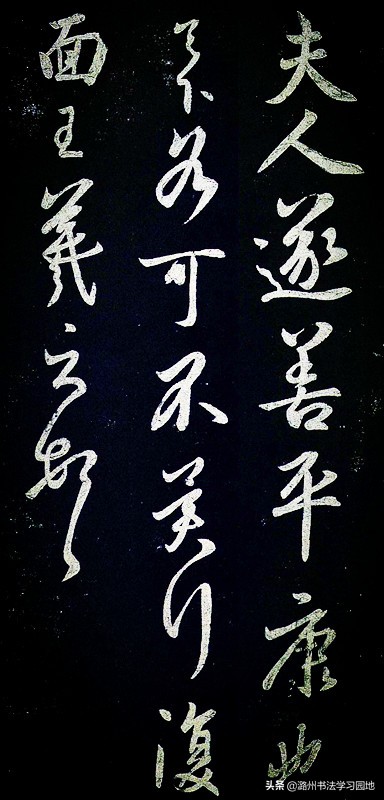 夫人遂善平康也
足下各可不冀行復
面王羲之頓首
头条 @潞州书法学习园地